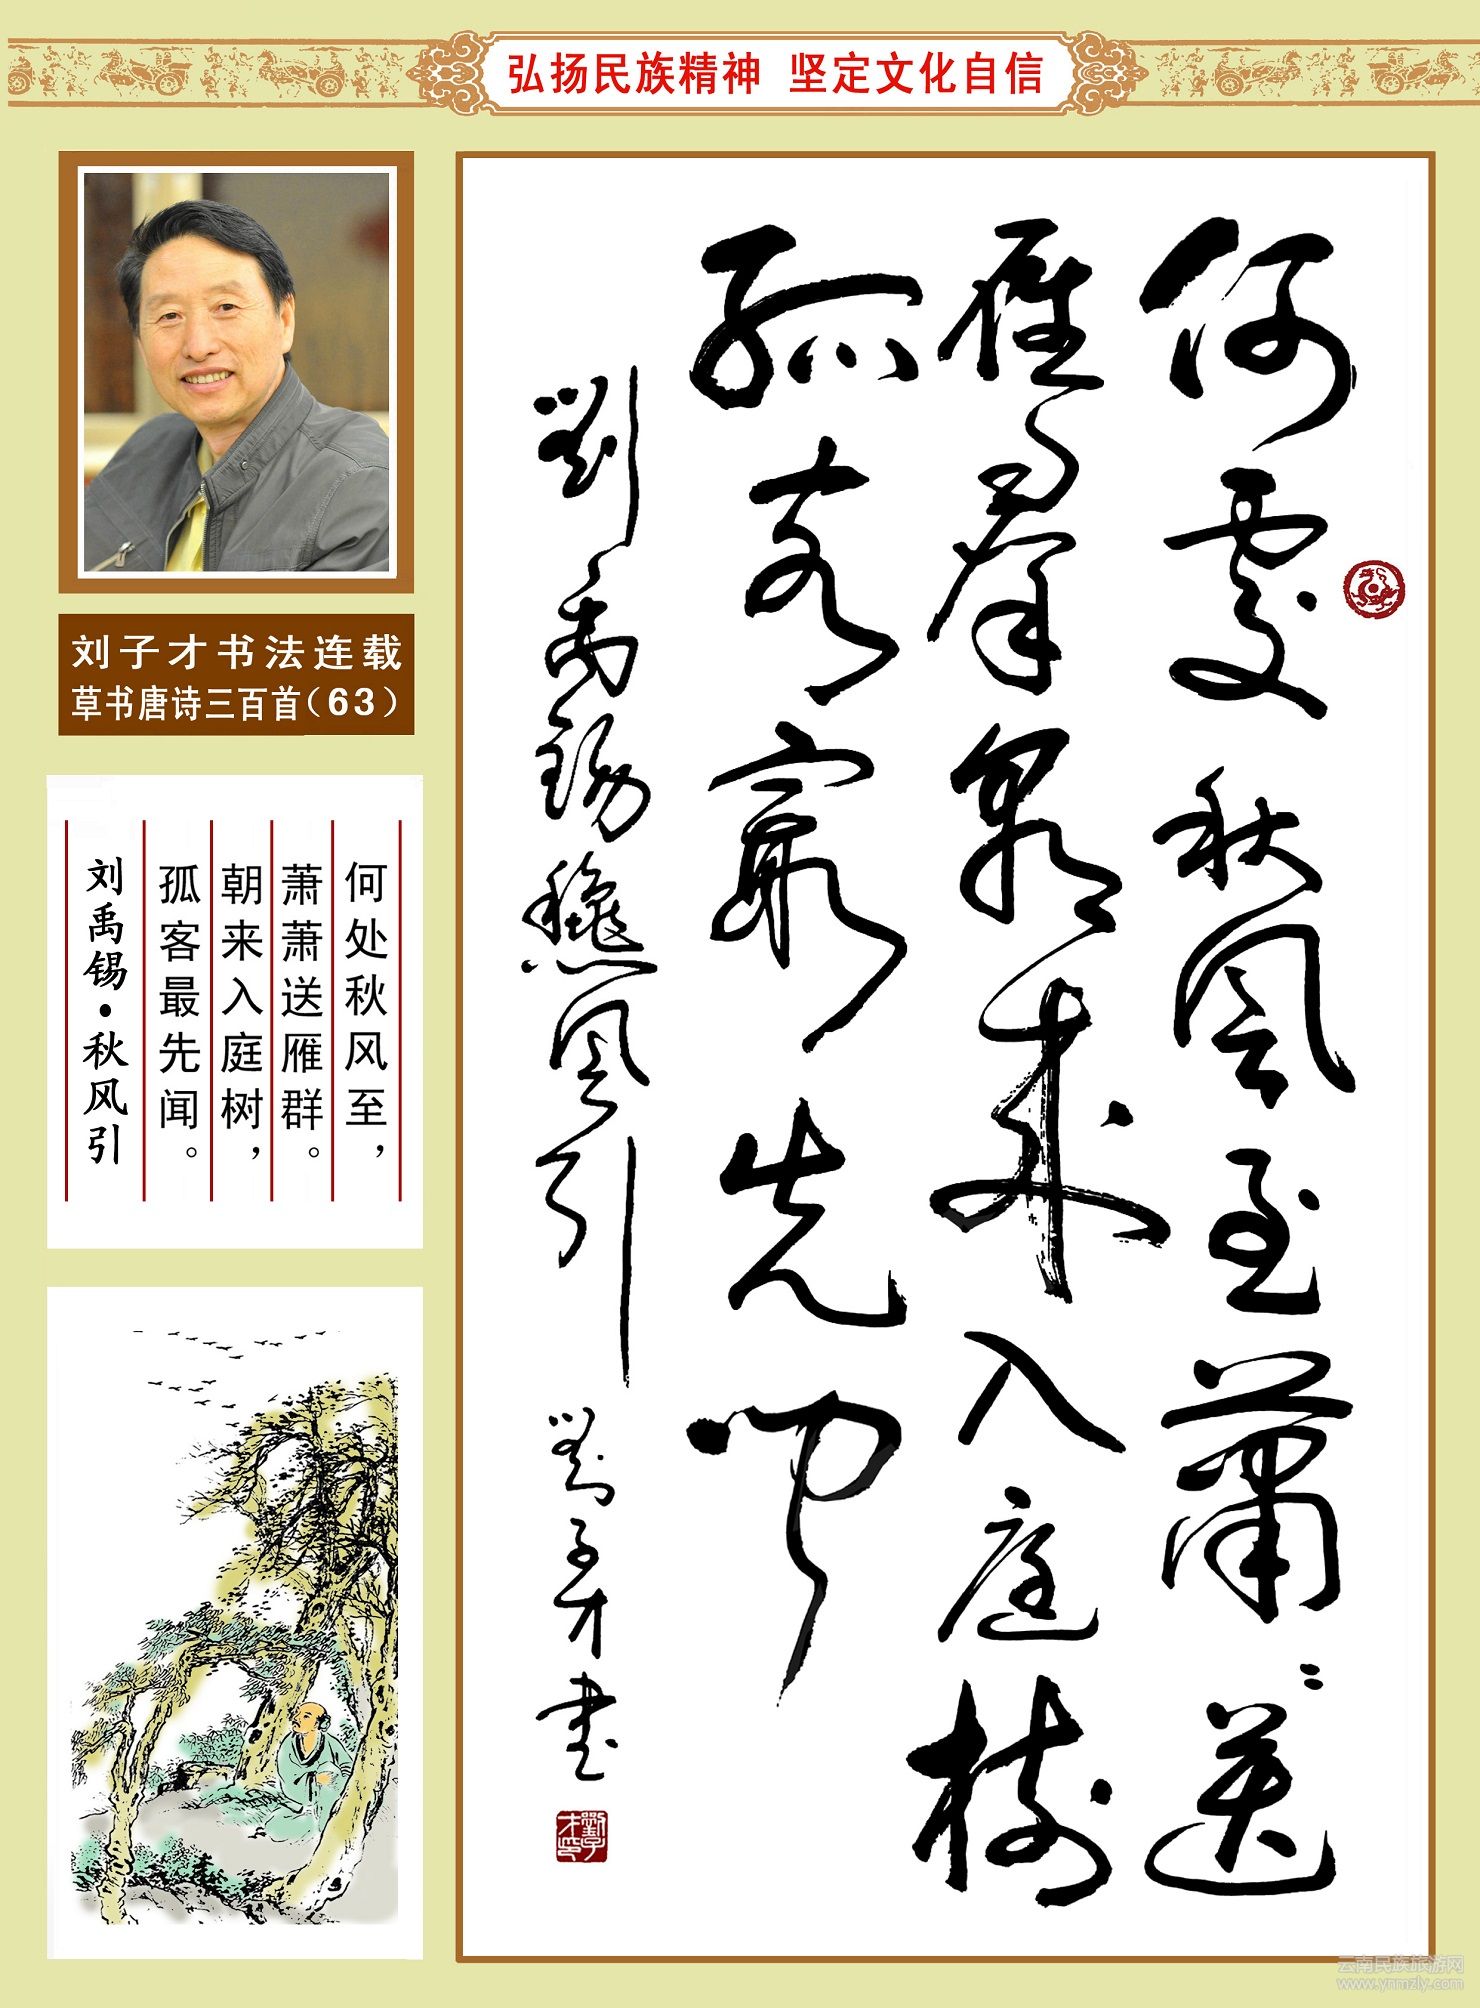 弘扬民族精神 坚定文化自信
刘子才书法连载
草书唐诗三百首（63）
何处秋风至，
萧萧送雁群。
朝来入庭树，
孤客最先闻。
刘禹锡·秋风引
何处秋风至萧萧送
雁群朝来入庭樹
孤客最先闻
劉禹锡龝風引 劉子才書
劉子才印
云南民族旅游网
www.ynmzly.com